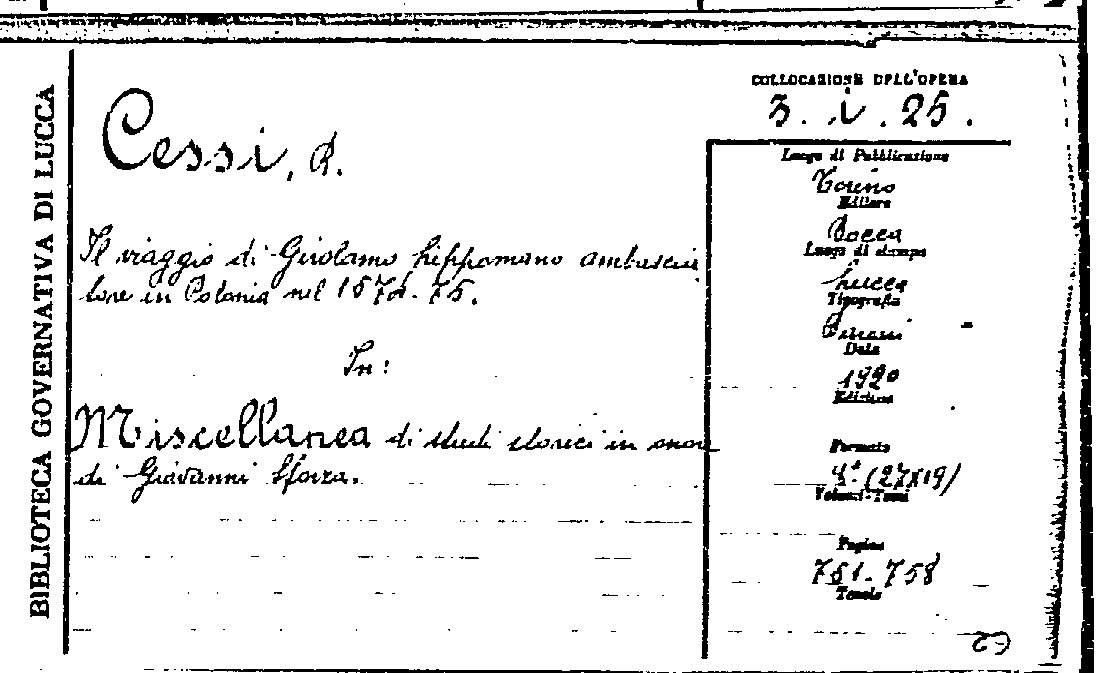 BIBLIOTECA GOVERNATIVA DI LUCCA
COLLOCAZIONE DELL'OPERA
3. i. 25.
Cessi, R.
Il viaggio di Girolamo Lippomano ambascia
tore in Polonia nel 1574-75.
In:
Miscellanea di studi storici in onore
di Giovanni Sforza.
Luogo di Pubblicazione
Torino
Editore
Bocca
Luogo di stampa
Lucca
Tipografia
Data
1920
Edizione
Formato
4° (27x19)
Volumi-Tomi
Pagine
751-758
Tavole